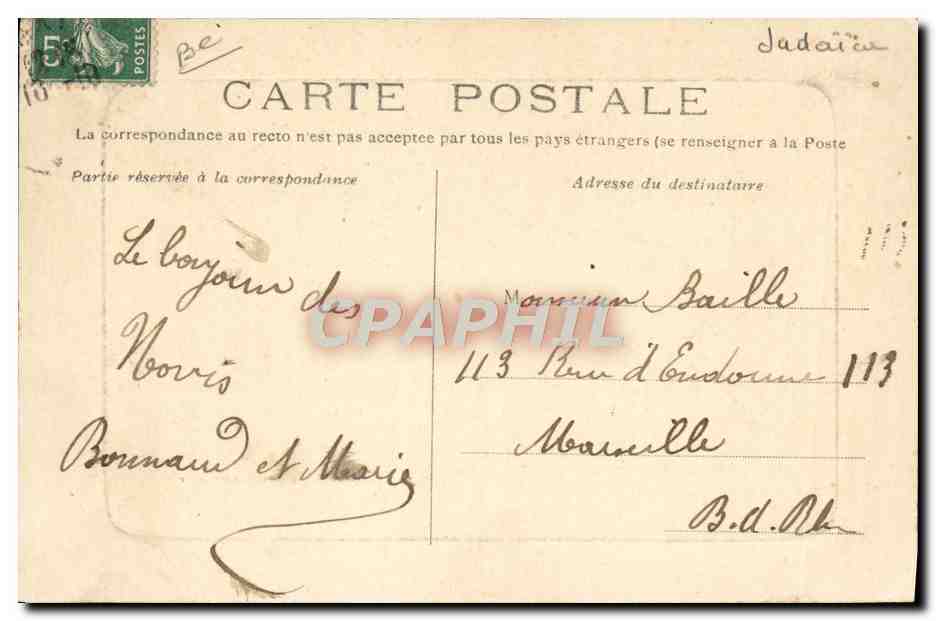 5c
POSTES
BC
Judaïca
CARTE POSTALE
La correspondance au recto n'est pas acceptee par tous les pays étrangers (se renseigner a la Poste
Partie réservée à la correspondance
Adresse du destinataire
Le bonjour des
Novis
Bonnaud et Marie
Monsieur Baille
113 Rue d'Endoume 113
Marseille
B.d.Rh
CPAPHIL